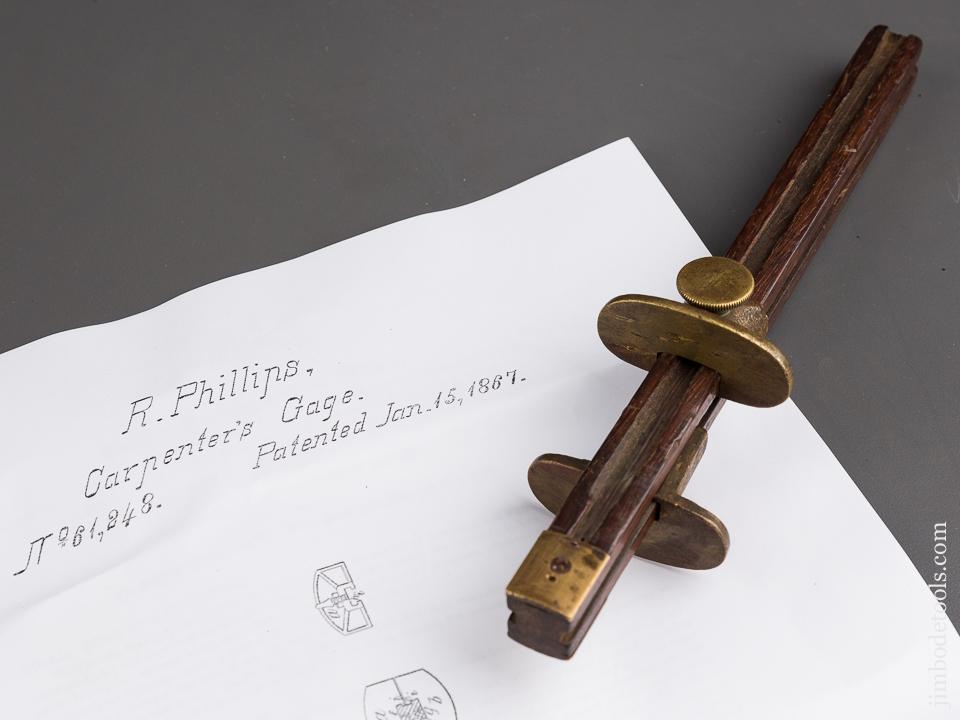 R. Phillips,
Carpenter's Gage.
Nº 61,248. Patented Jan. 15, 1867.
jimbodetools.com